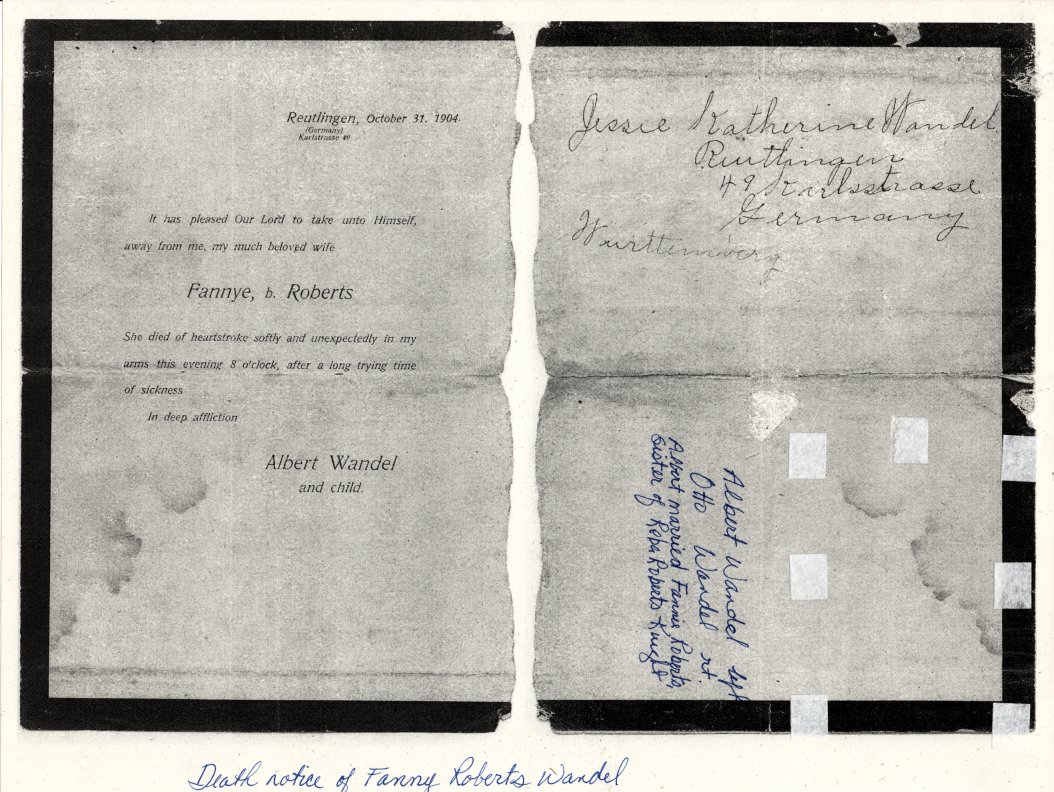 Reutlingen, October 31. 1904.
(Germany)
Karlstrasse 49
It has pleased Our Lord to take unto Himself,
away from me, my much beloved wife
Fannye, b. Roberts
She died of heartstroke softly and unexpectedly in my
arms this evening 8 o'clock, after a long trying time
of sickness
In deep affliction
Albert Wandel
and child.
Jessie Katherine Wandel
Reutlingen
49 Karlsstrasse
Germany
Wurttemberg
Albert Wandel left
Otto Wandel rt.
Albert married Fannie Roberts,
sister of Reba Roberts Knight
Death notice of Fanny Roberts Wandel